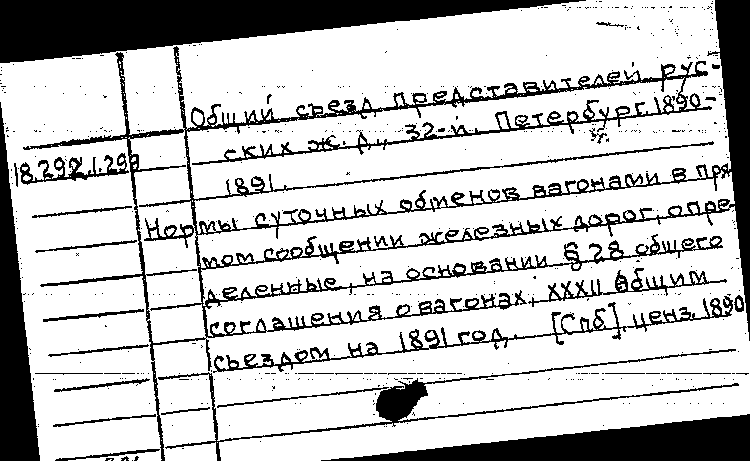 Общий съезд представителей рус-
ских ж. д., 32-й. Петербург. 1890-
18.292.1.299
1891.
Нормы суточных обменов вагонами в пря-
мом сообщении железных дорог, опре-
деленные, на основании § 28 общего
соглашения о вагонах, XXXII Общим
съездом на 1891 год. [Спб], ценз. 1890